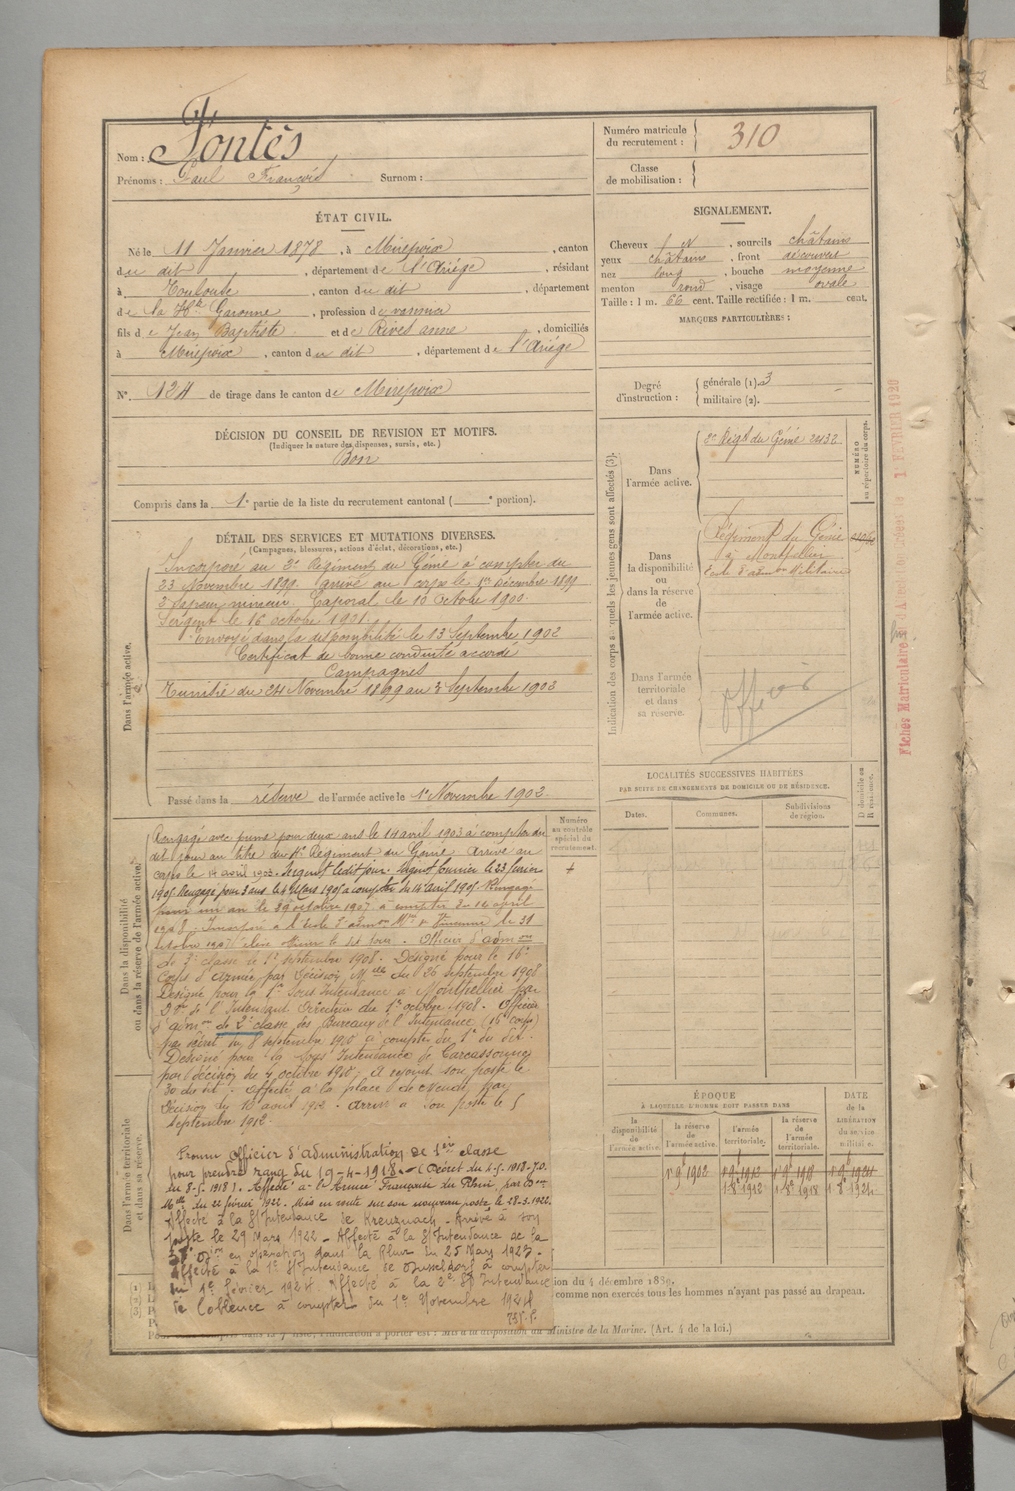 Nom : Fontès
Prénoms : Paul François Surnom :
Numéro matricule du recrutement : 310
Classe de mobilisation :
ÉTAT CIVIL.
Né le 11 Janvier 1878, à Mirepoix, canton
du dit, département de l'Ariège, résidant
à Toulouse, canton du dit, département
de la Hte Garonne, profession de
fils de Jean Baptiste et de Rives anne, domiciliés
à Mirepoix, canton du dit, département de l'Ariége
N° 124 de tirage dans le canton de Mirepoix
SIGNALEMENT.
Cheveux N, sourcils châtains
yeux châtains, front découvert
nez long, bouche moyenne
menton rond, visage ovale
Taille : 1 m. 66 cent. Taille rectifiée : 1 m. cent.
MARQUES PARTICULIÈRES :
Degré d'instruction : générale (1). 3
militaire (2).
DÉCISION DU CONSEIL DE REVISION ET MOTIFS.
(Indiquer la nature des dispenses, sursis, etc.)
Bon
Compris dans la 1e partie de la liste du recrutement cantonal ( e portion).
DÉTAIL DES SERVICES ET MUTATIONS DIVERSES.
(Campagnes, blessures, actions d'éclat, décorations, etc.)
Dans l'armée active.
Incorporé au 2e Régiment du Génie à compter du
23 Novembre 1899. arrivé au corps le 1er Décembre 1899
2 Sapeur mineur. Caporal le 10 Octobre 1900.
Sergent le 16 octobre 1901.
Envoyé dans la disponibilité le 13 Septembre 1902
Certificat de bonne conduite accordé
Campagnes
Tunisie du 24 Novembre 1899 au 3 Septembre 1902
Passé dans la réserve de l'armée active le 1er Novembre 1902
Indication des corps auxquels les jeunes gens sont affectés (3).
NUMÉRO au répertoire du corps.
Dans l'armée active.
2e Régt du Génie 2432
Dans la disponibilité ou dans la réserve de l'armée active.
Régiment du Génie
à Montpellier
Ecole d'admon Militaire
Dans l'armée territoriale et dans sa réserve.
Fiches Matriculaires
1 FEVRIER 1920
LOCALITÉS SUCCESSIVES HABITÉES
PAR SUITE DE CHANGEMENTS DE DOMICILE OU DE RÉSIDENCE.
D domicile ou R résidence.
Dates. Communes. Subdivisions de région.
Dans la disponibilité ou dans la réserve de l'armée active.
Numéro au contrôle spécial du recrutement.
Rengagé avec prime pour deux ans le 14 avril 1903 à compter du
dit jour au titre du Régiment du Génie Arrivé au
corps le 14 avril 1903. Sergent ledit jour. Sergent fourrier le 23 février
1905 Rengagé pour 3 ans le 4 Mars 1905 à compter du 14 avril 1905 Rengagé
pour un an le 29 octobre 1907 à compter du 14 avril
1908. Incorporé à l'école d'admon Mre de Vincennes le 31
octobre 1907 élève officier le dit jour. Officier d'admon
de 3e classe le 1er septembre 1908. Désigné pour le 16e
Corps d'Armée par décision Mlle du 26 septembre 1908
Désigné pour la 1re Sous Intendance à Montpellier par
de l'Intendant Directeur du 1er octobre 1908. Officier
d'admon de 2e classe des Bureaux de l'Intendance (16e corps)
par décret du 8 septembre 1910 à compter du 1er du dit.
Désigné pour la Sous Intendance de Carcassonne
par décision du 4 octobre 1910; a rejoint son poste le
30 du dit. Affecté à la place de par
décision du 10 août 1912. Arrivé à son poste le 5
septembre 1912.
Dans l'armée territoriale et dans sa réserve.
Promu Officier d'administration de 1ère classe
pour prendre rang du 19-4-1918. (Décret du 4-5-1918-J.O.
du 8-5-1918). Affecté à l'Armée Française du Rhin, par Don
Mlle du 22 février 1922. Mis en route sur son nouveau poste le 28-3-1922.
Affecté à la S/Intendance de Kreuznach - Arrivé à son
poste le 29 Mars 1922 - Affecté à la S/Intendance de la
Don en opération dans la Rhur du 25 Mars 1923 -
Affecté à la 1e S/Intendance de Dusseldorf à compter
du 1er février 1924. Affecté à la 2e S/Intendance
de Coblence à compter du 1er Novembre 1924
ÉPOQUE
À LAQUELLE L'HOMME DOIT PASSER DANS
DATE de la LIBÉRATION du service militaire.
la disponibilité de l'armée active. la réserve de l'armée active. l'armée territoriale. la réserve de l'armée territoriale.
1er 9bre 1902 1er 9bre 1912 1er 9bre 1918 1er 9bre 1924
1-8bre 1912 1-8bre 1918 1-8bre 1924
ion du 4 décembre 1889.
comme non exercés tous les hommes n'ayant pas passé au drapeau.
l'indication à porter est : Mis à la disposition du Ministre de la Marine. (Art. 4 de la loi.)